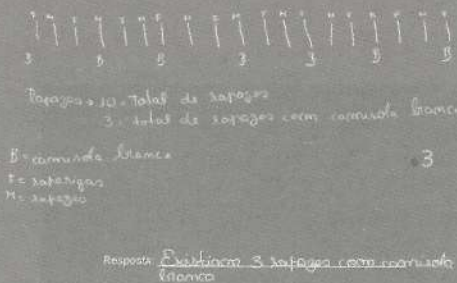 B B B B B B B
Rapazes → 10 - Total de rapazes
3 - total de rapazes com camisola branca
B = camisola branca
F = raparigas
M = rapazes
3
Resposta: Existiam 3 rapazes com camisola
branca